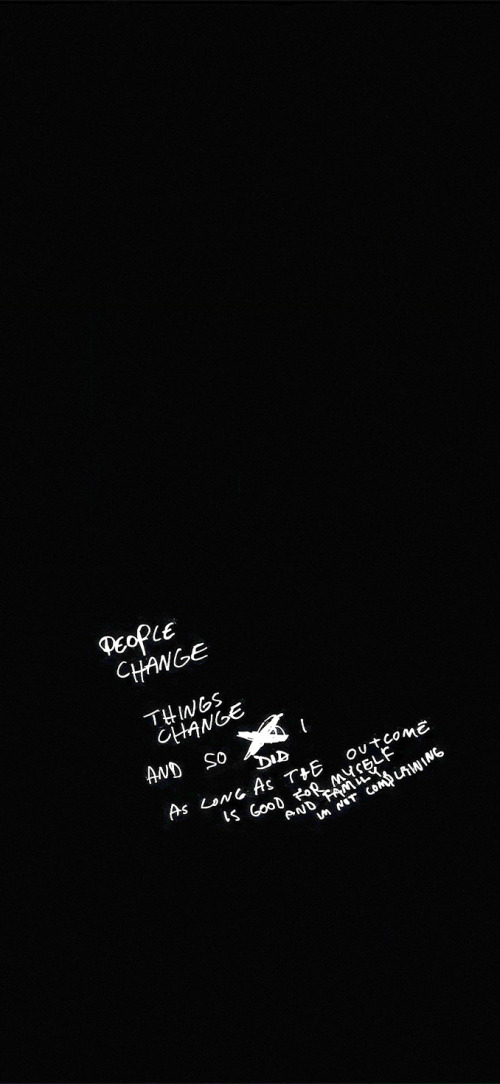 PEOPLE
CHANGE
THINGS
CHANGE
AND SO DID I
AS LONG AS THE OUTCOME
IS GOOD FOR MYSELF
AND FAMILY
IM NOT COMPLAINING